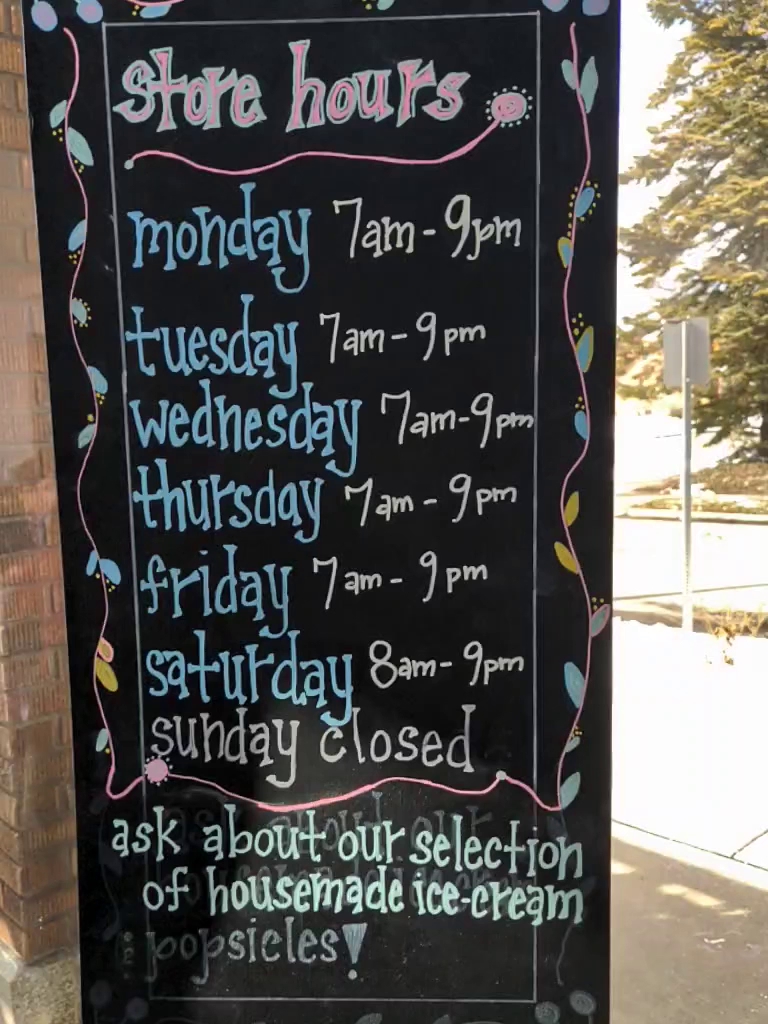 store hours
monday 7am - 9pm
tuesday 7am - 9pm
wednesday 7am - 9pm
thursday 7am - 9pm
friday 7am - 9pm
saturday 8am - 9pm
sunday closed
ask about our selection
of housemade ice-cream
popsicles!